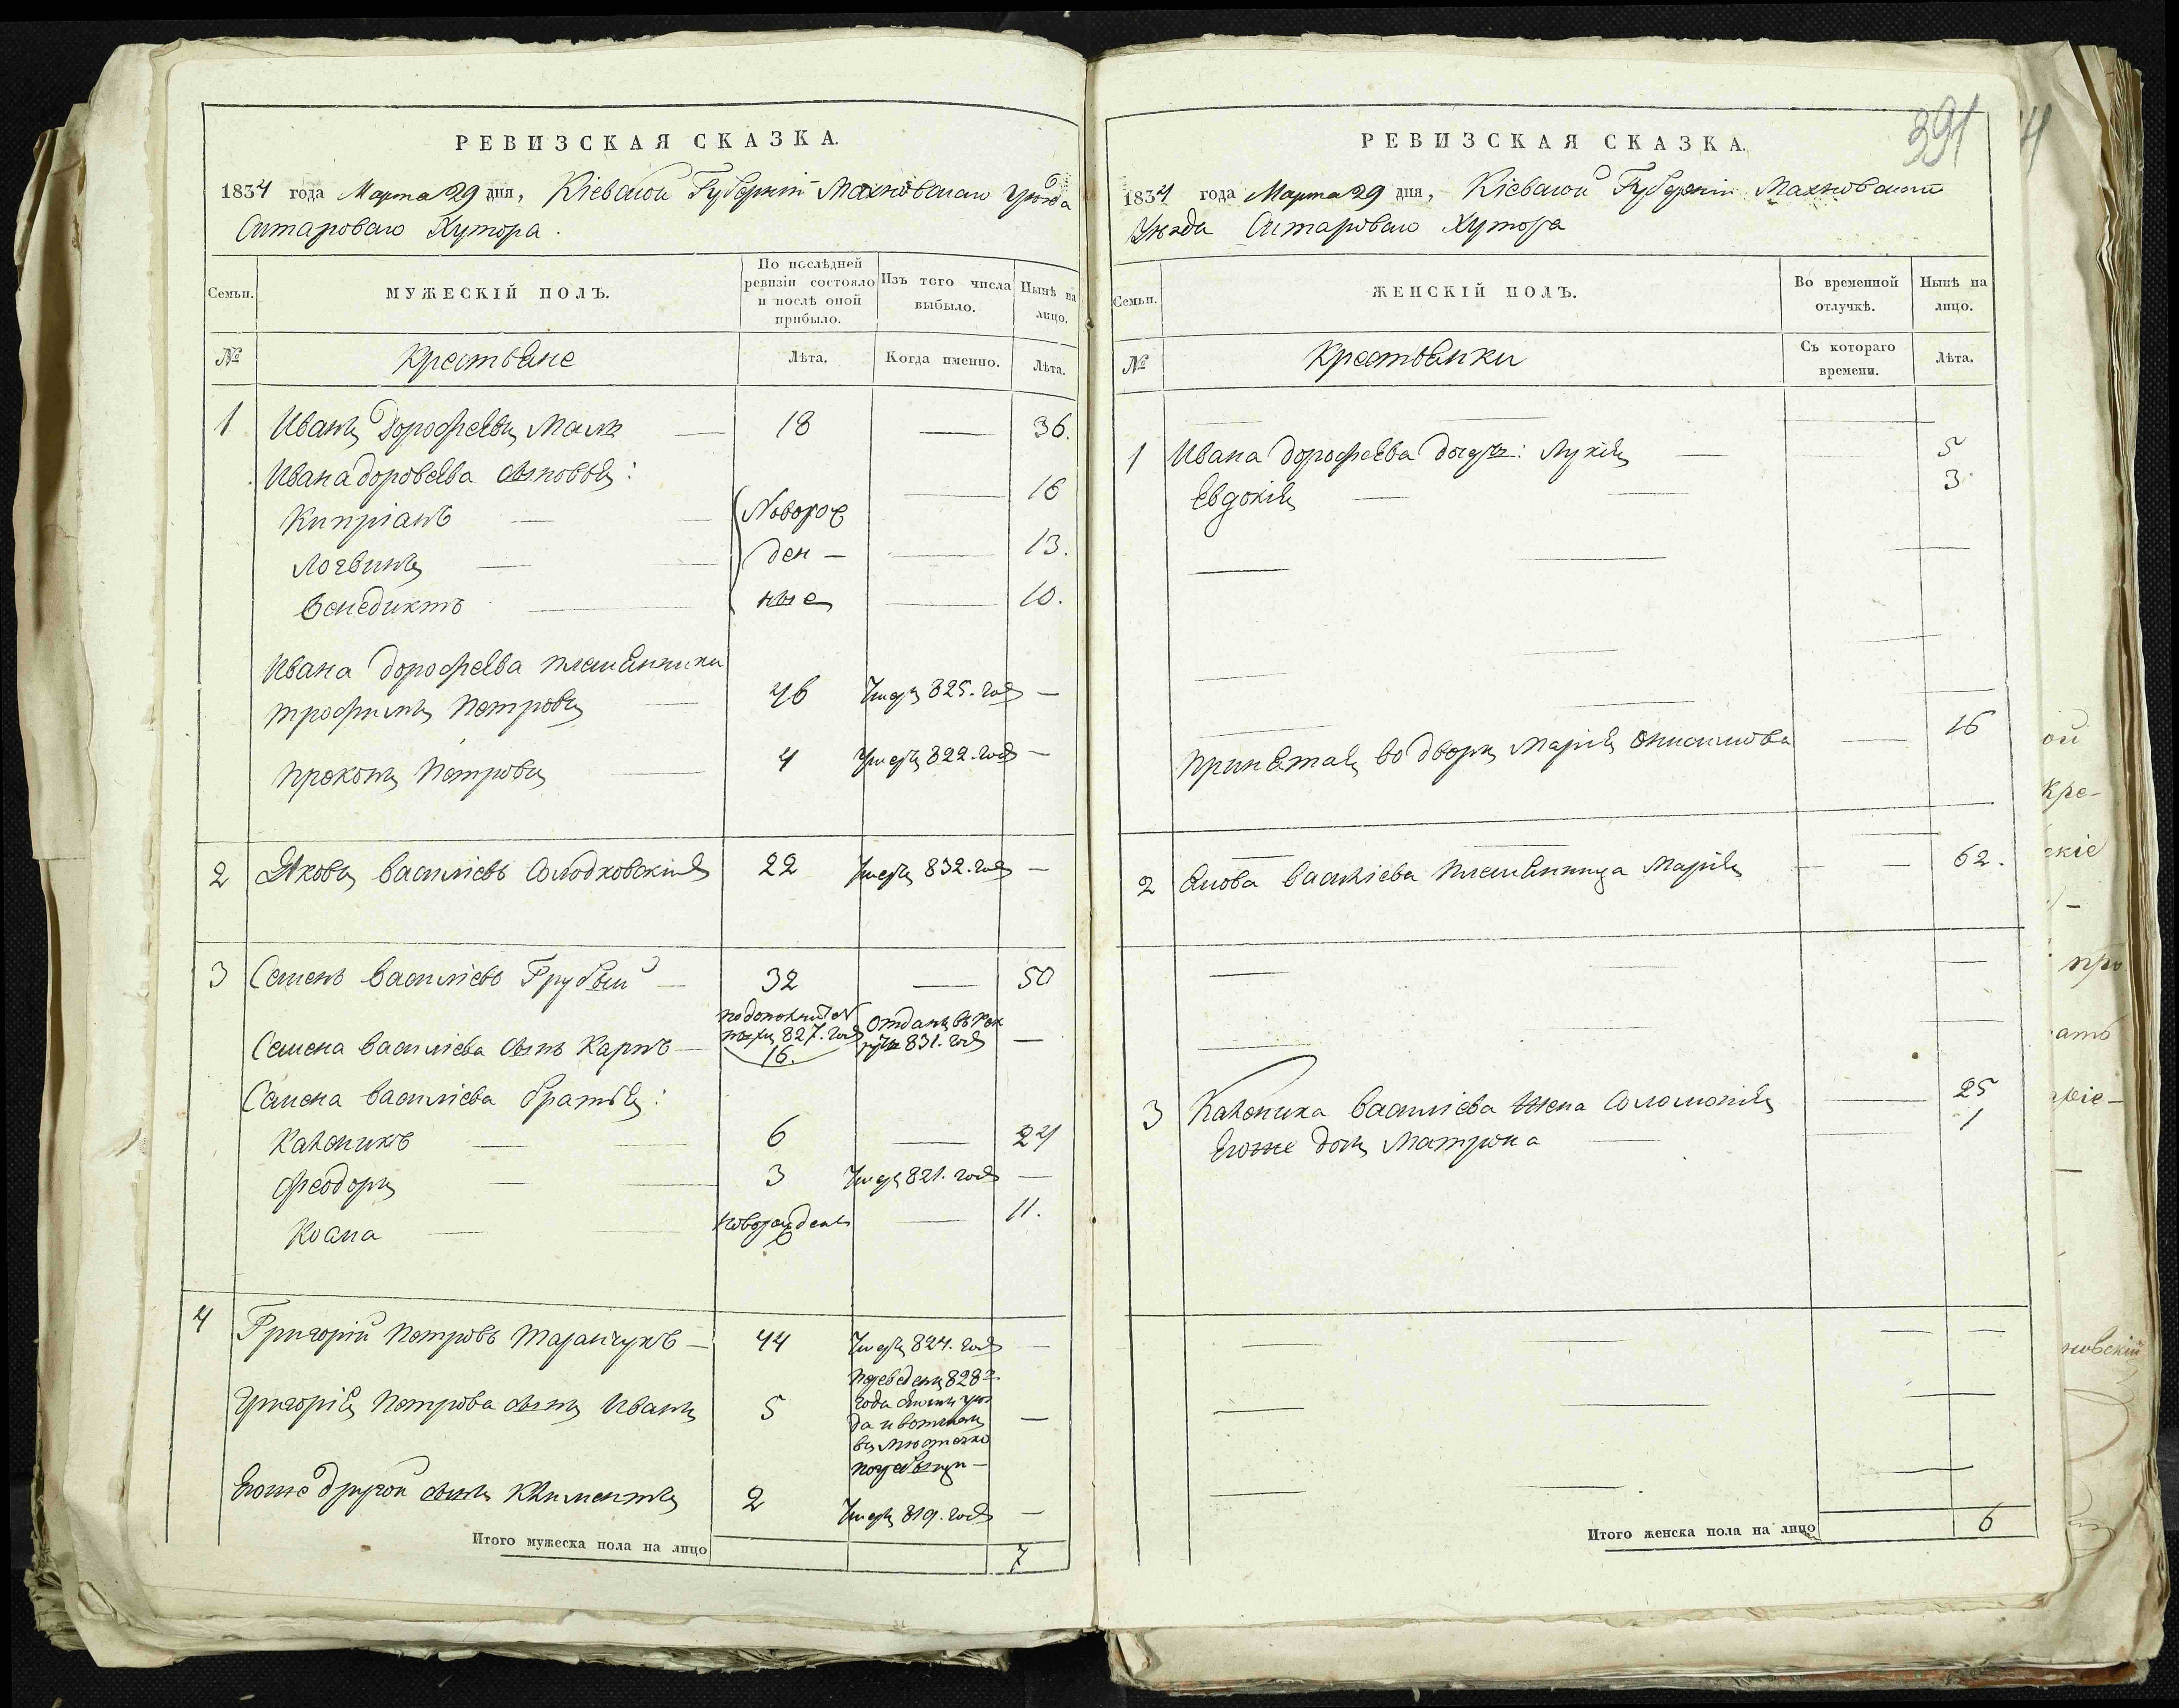 РЕВИЗСКАЯ СКАЗКА.
1834 года Марта 29 дня, Кіевской Губерніи Махновскаго Уѣзда
Хутора.
Семьи.
МУЖЕСКІЙ ПОЛЪ.
По послѣдней ревизіи состояло и послѣ оной прибыло.
Изъ того числа выбыло.
Нынѣ на лицо.
№
Крестьяне
Лѣта.
Когда именно.
Лѣта.
1 Иванъ Дорофеевъ 18 — 36.
Ивана Дорофеева сыновья:
Кипріанъ — Новорож — 16
Логвинъ — ден — — 13.
Венедиктъ — ные — 10.
Ивана Дорофеева племянники
Трофимъ Петровъ — 46 Умеръ 825. года —
Прокопъ Петровъ — 4 Умеръ 822. года —
2 Яковъ Василіевъ Солодковскій 22 Умеръ 832. года —
3 Семенъ Василіевъ Грубый — 32 — 50
Семена Василіева сынъ Карпъ — 827. года 16. Отданъ въ рек руты 831. года —
Семена Василіева братья:
Каленикъ — 6 — 24
Феодоръ — 3 Умеръ 821. года —
Косма — новорожденъ — 11.
4 Григорій Петровъ Таранчукъ — 44 Умеръ 824. года —
Григорія Петрова сынъ Иванъ 5
Переведенъ 828го
года
въ мѣстечко
—
Егоже другой сынъ Климентій 2 Умеръ 819. года —
Итого мужеска пола на лицо 7
391
РЕВИЗСКАЯ СКАЗКА.
1834 года Марта 29 дня, Кіевской Губерніи Махновскаго
Уѣзда Хутора
Семьи.
ЖЕНСКІЙ ПОЛЪ.
Во временной отлучкѣ.
Нынѣ на лицо.
№
Крестьянки
Съ котораго времени.
Лѣта.
1 Ивана Дорофеева дочери: Лукія — 5
Евдокія — 3
Принятая во дворъ Марія Онисимова — 16
2 Якова Василіева племянница Марія — 62.
3 Каленика Василіева жена Соломонія — 25
Егоже дочь Матрона — 1
Итого женска пола на лицо 6